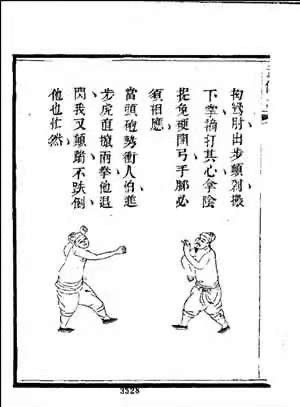 拗鸞肘出步顛剁搬
下掌摘打其心拿陰
捉兔硬開弓手腳必
須相應
當頭砲勢衝人怕進
步虎直攛兩拳他退
閃我又顛踹不跌倒
他也茫然
3528